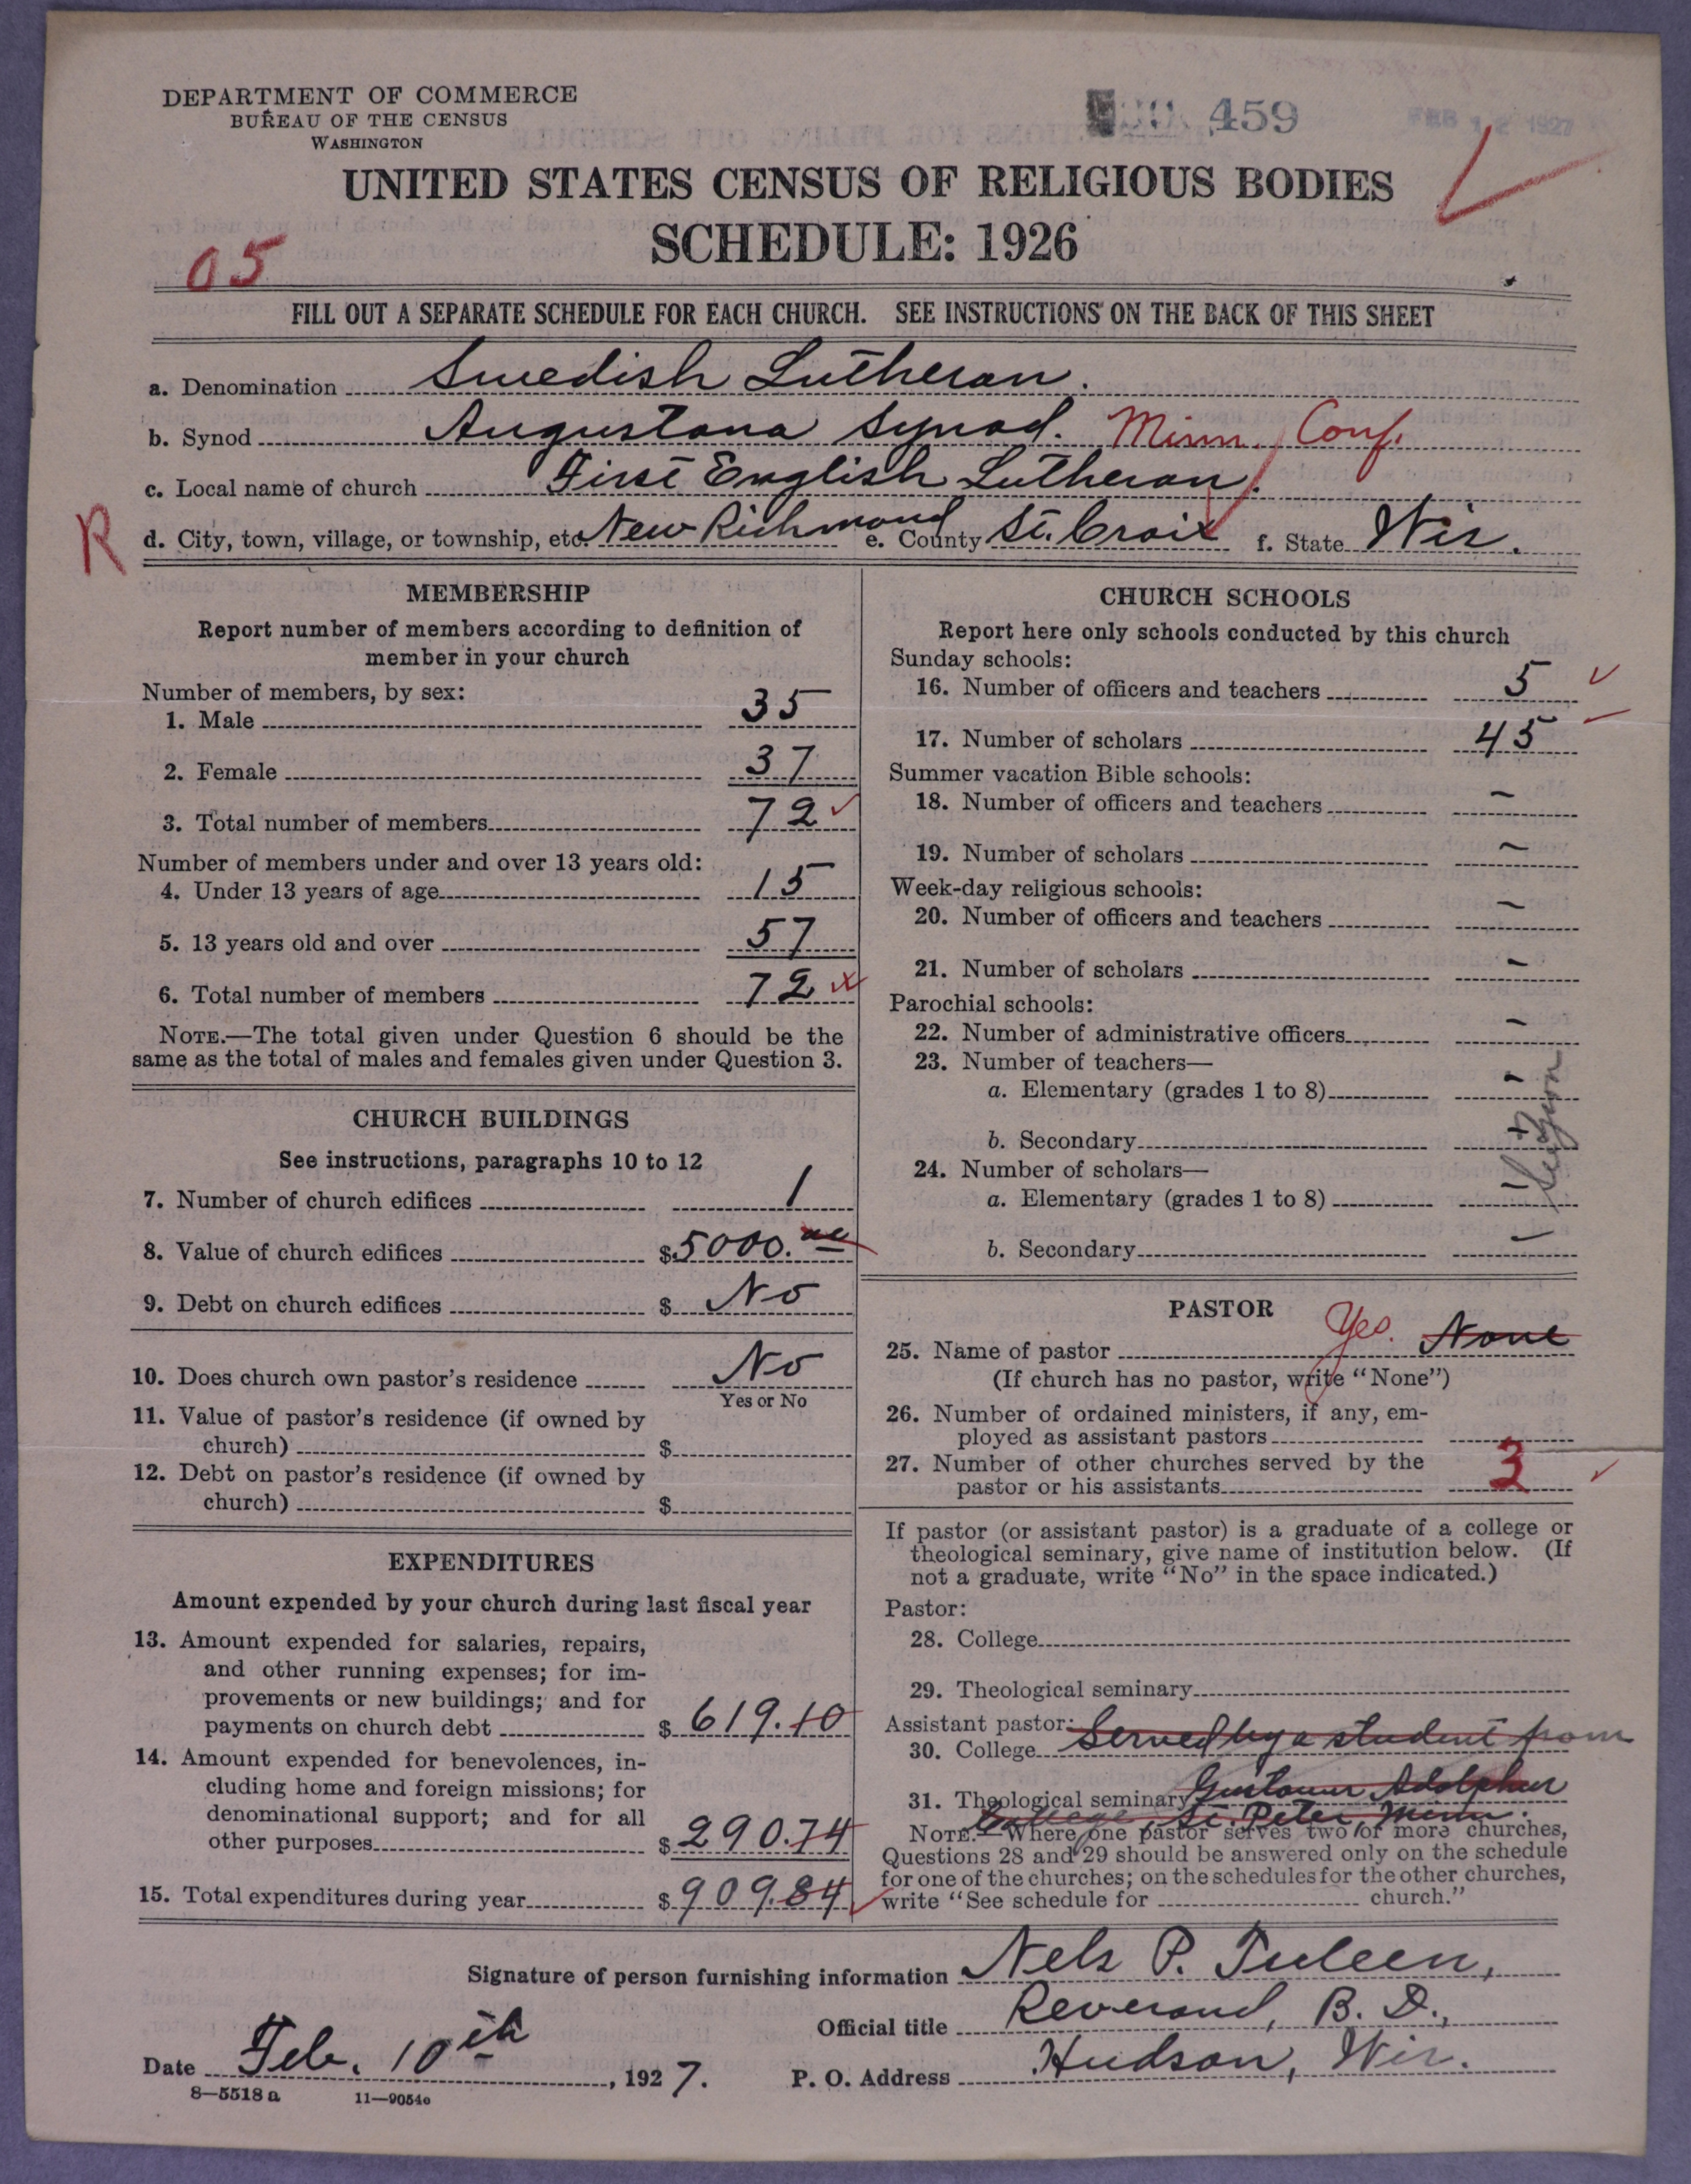 DEPARTMENT OF COMMERCE
BUREAU OF THE CENSUS
WASHINGTON
459
FEB 12 1927
UNITED STATES CENSUS OF RELIGIOUS BODIES
SCHEDULE: 1926
05
FILL OUT A SEPARATE SCHEDULE FOR EACH CHURCH. SEE INSTRUCTIONS ON THE BACK OF THIS SHEET
a. Denomination Swedish Lutheran.
b. Synod Augustana Synod. Minn. Conf.
c. Local name of church First English Lutheran.
R
d. City, town, village, or township, etc. New Richmond e. County St. Croix f. State Wis.
MEMBERSHIP
Report number of members according to definition of
member in your church
Number of members, by sex:
1. Male 35
2. Female 37
3. Total number of members 72
Number of members under and over 13 years old:
4. Under 13 years of age 15
5. 13 years old and over 57
6. Total number of members 72
NOTE.—The total given under Question 6 should be the
same as the total of males and females given under Question 3.
CHURCH BUILDINGS
See instructions, paragraphs 10 to 12
7. Number of church edifices 1
8. Value of church edifices $5000.
9. Debt on church edifices $ No
10. Does church own pastor's residence No
Yes or No
11. Value of pastor's residence (if owned by
church) $
12. Debt on pastor's residence (if owned by
church) $
EXPENDITURES
Amount expended by your church during last fiscal year
13. Amount expended for salaries, repairs,
and other running expenses; for im-
provements or new buildings; and for
payments on church debt $ 619.10
14. Amount expended for benevolences, in-
cluding home and foreign missions; for
denominational support; and for all
other purposes $ 290.74
15. Total expenditures during year $ 909.84
CHURCH SCHOOLS
Report here only schools conducted by this church
Sunday schools:
16. Number of officers and teachers 5
17. Number of scholars 45
Summer vacation Bible schools:
18. Number of officers and teachers –
19. Number of scholars –
Week-day religious schools:
20. Number of officers and teachers –
21. Number of scholars –
Parochial schools:
22. Number of administrative officers –
23. Number of teachers—
a. Elementary (grades 1 to 8) –
b. Secondary
24. Number of scholars—
a. Elementary (grades 1 to 8) –
b. Secondary –
PASTOR
25. Name of pastor Yes. None
(If church has no pastor, write "None")
26. Number of ordained ministers, if any, em-
ployed as assistant pastors
27. Number of other churches served by the
pastor or his assistants 3
If pastor (or assistant pastor) is a graduate of a college or
theological seminary, give name of institution below. (If
not a graduate, write "No" in the space indicated.)
Pastor:
28. College
29. Theological seminary
Assistant pastor:
30. College Served by a student from
31. Theological seminary Gustavus Adolphus
College, St. Peter, Minn.
NOTE.—Where one pastor serves two or more churches,
Questions 28 and 29 should be answered only on the schedule
for one of the churches; on the schedules for the other churches,
write "See schedule for church."
Signature of person furnishing information Nels P. Tuleen,
Official title Reverand, B. D.,
Date Feb. 10th, 1927. P. O. Address Hudson, Wis.
8—5518 a 11—9054e